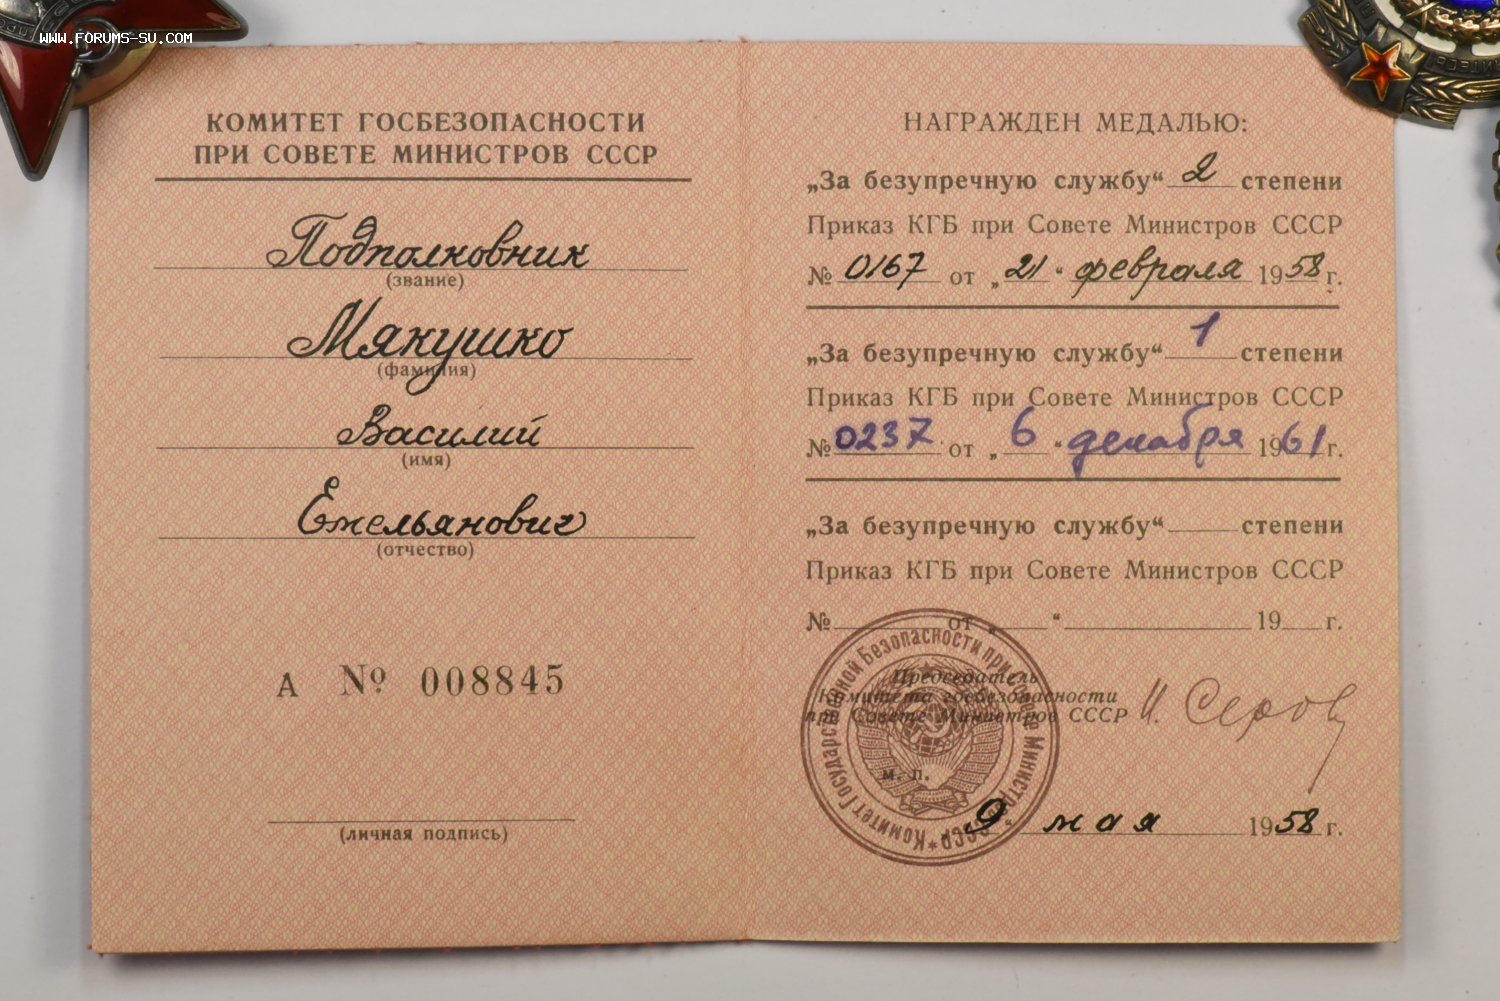 www.forums-su.com
КОМИТЕТ ГОСБЕЗОПАСНОСТИ
ПРИ СОВЕТЕ МИНИСТРОВ СССР
Подполковник
(звание)
Мякушко
(фамилия)
Василий
(имя)
Емельянович
(отчество)
А № 008845
(личная подпись)
НАГРАЖДЕН МЕДАЛЬЮ:
„За безупречную службу“ 2 степени
Приказ КГБ при Совете Министров СССР
№ 0167 от „21“ февраля 1958 г.
„За безупречную службу“ 1 степени
Приказ КГБ при Совете Министров СССР
№ 0237 от „6“ декабря 1961 г.
„За безупречную службу“ степени
Приказ КГБ при Совете Министров СССР
№ от „ “ 19 г.
Председатель
Комитета госбезопасности
при Совете Министров СССР И. Серов
м. п.
9 мая 1958 г.
Комитет Государственной Безопасности при Совете Министров СССР